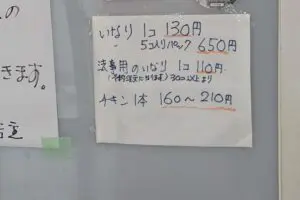 の
きます。
いなり 1コ 130円
〃 5コ入りパック 650円
法事用のいなり 1コ 110円
(予約注文になります) 30コ以上より
チキン 1本 160〜210円